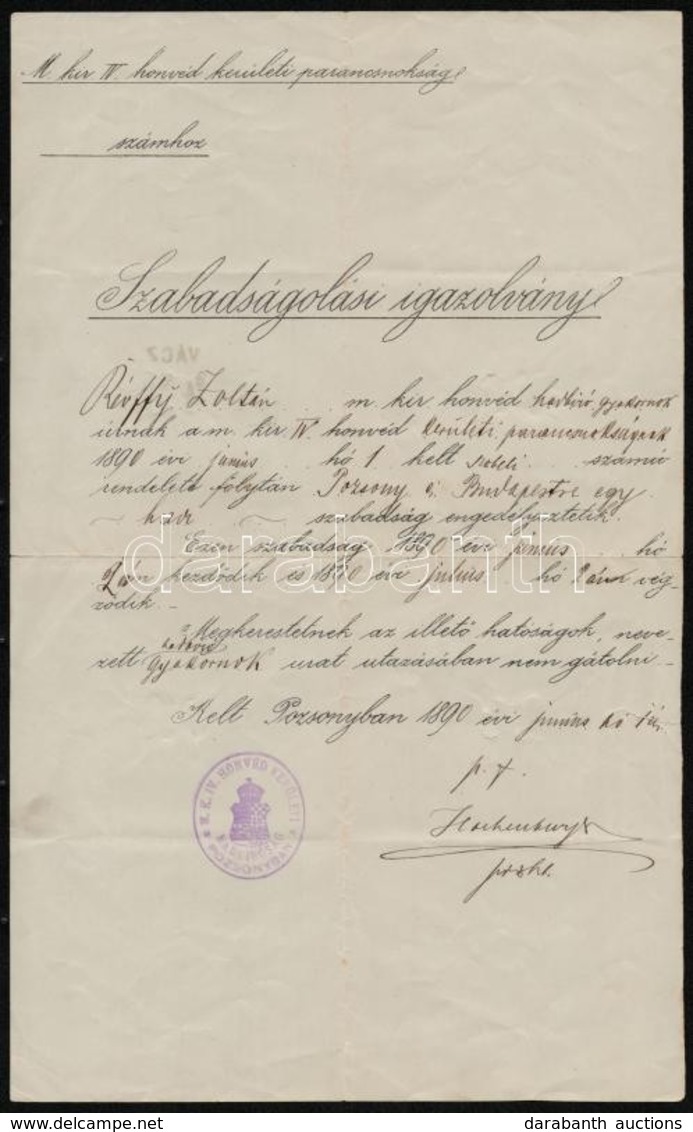 M. kir IV. honvéd kerületi parancsnokság
számhoz
Szabadságolási igazolvány
VÁCZ
Révffy Zoltán m. kir. honvéd hadbiró gyakornok
úrnak a m. kir IV honvéd kerületi parancsnokságnak
1890 évi junius hó 1 kelt számú
rendelete folytán Pozsony és Budapestre egy
szabadság engedélyeztetik.
Ezen szabadság 1890 évi junius hó
2 án kezdődik és 1890 évi julius hó 2 án vég-
ződik.
Megkerestetnek az illető hatóságok, neve-
zett gyakornok urat utazásában nem gátolni.
Kelt Pozsonyban 1890 évi junius hó
M. K. IV. HONVÉD KERÜLETI
POZSONYBAN
darabanth
www.darabanth.com
darabanth auctions